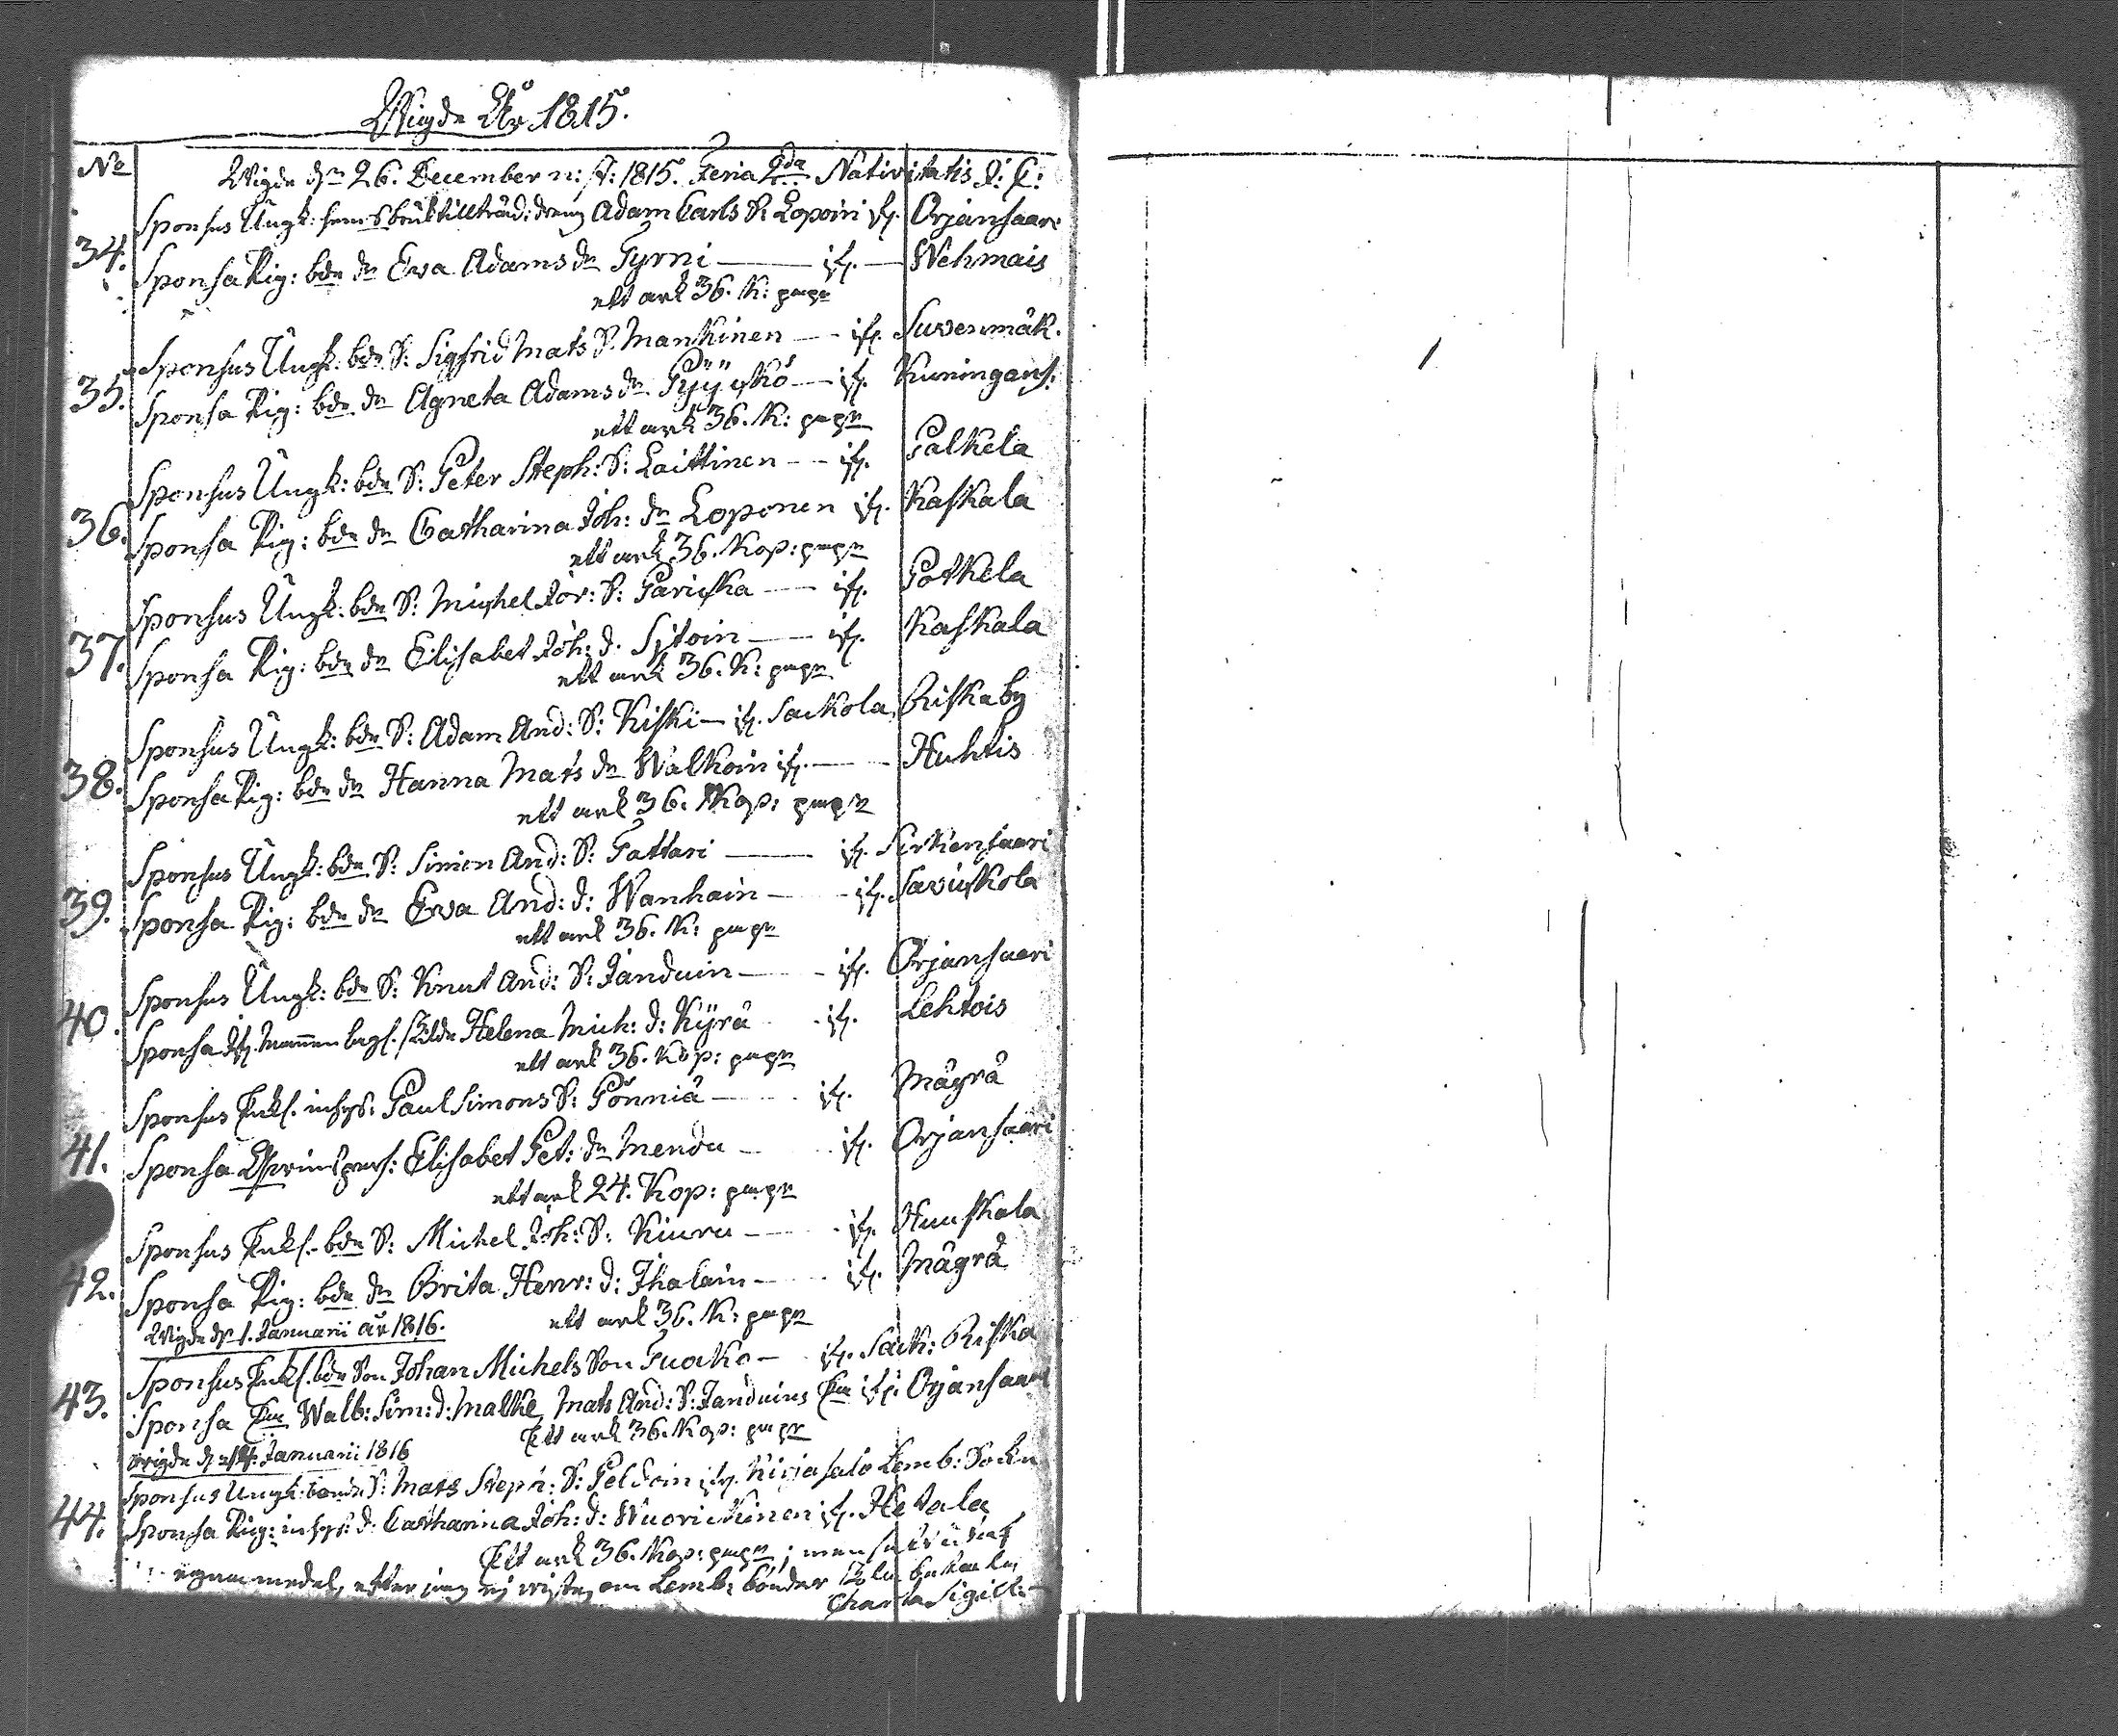 Wigde År 1815.
No
Wigde dn 26. December n: st: 1815. Feria 2da Nativitatis J: C:
34. Sponsus Ungk: dreng Adam Carls S: Loponi ifr. Orjansaari
Sponsa Pig: bde dr Eva Adams dr Tyrni — ifr. — Wehmais
ett ark 36. K: papr
35. Sponsus Ungk: bde S: Sigfrid Mats S: Mankinen — ifr. Suvenmäk.
Sponsa Pig: bde dr Agneta Adams dr — ifr. Kuningans.
ett ark 36. K: papr
36. Sponsus Ungk: bde S: Peter Steph: S: Laittinen — ifr. Palkela
Sponsa Pig: bde dr Catharina Joh: dr Loponen ifr. Kaskala
ett ark 36. Kop: papr
37. Sponsus Ungk: bde S: Michel Jör: S: Paricka — ifr. Potkela
Sponsa Pig: bde dr Elisabet Joh: d. — ifr. Kaskala
ett ark 36. K: papr
38. Sponsus Ungk: bde S: Adam And: S: Kiski — ifr. Sackola, Riskaby
Sponsa Pig: bde dr Hanna Mats dr Walkoin ifr. — Huhtis
ett ark 36. Kop: papr
39. Sponsus Ungk: bde S: Simon And: S: Tattari — ifr. Sirkensaari
Sponsa Pig: bde dr Eva And: d: Wanhain — ifr. Savickola
ett ark 36. K: papr
40. Sponsus Ungk: bde S: Knut And: S: Janduin — ifr. Orjansaari
Sponsa Helena Mich: d: Kÿrä ifr. Lehtois
ett ark 36. Kop: papr
41. Sponsus Enkl. inhys: Paul Simons S: Pönniä — ifr. Mägrä
Sponsa Elisabet Pet: dr Mendu — ifr. Orjansaari
ett ark 24. Kop: papr
42. Sponsus Enkl. bde S: Michel Joh: S: Kiuru — ifr. Huuskala
Sponsa Pig: bde dr Brita Henr: d: Ihalain — ifr. Mägrä
ett ark 36. K: papr
Wigde d. 1. Januarii år 1816.
43. Sponsus Enkl. bde Son Johan Michels Son Tuocko — ifr. Sack: Riska
Sponsa Enk Walb: Sim: d: Malke, Mats And: S: Janduins Enk ifr. Orjansaari
Ett ark 36. Kop: papr
Wigde d. Januarii 1816
44. Sponsus Ungk: bonde S: Mats Steph: S: Peldoin ifr. Kirjasalo Lemb: Sockn
Sponsa Pig: inhys: d: Catharina Joh: d: Wuorickinen ifr. Hetala
Ett ark 36. Kop: papr; men
egna medel, efter jag ej viste, om Lemb: bönder
Charta Sigill: